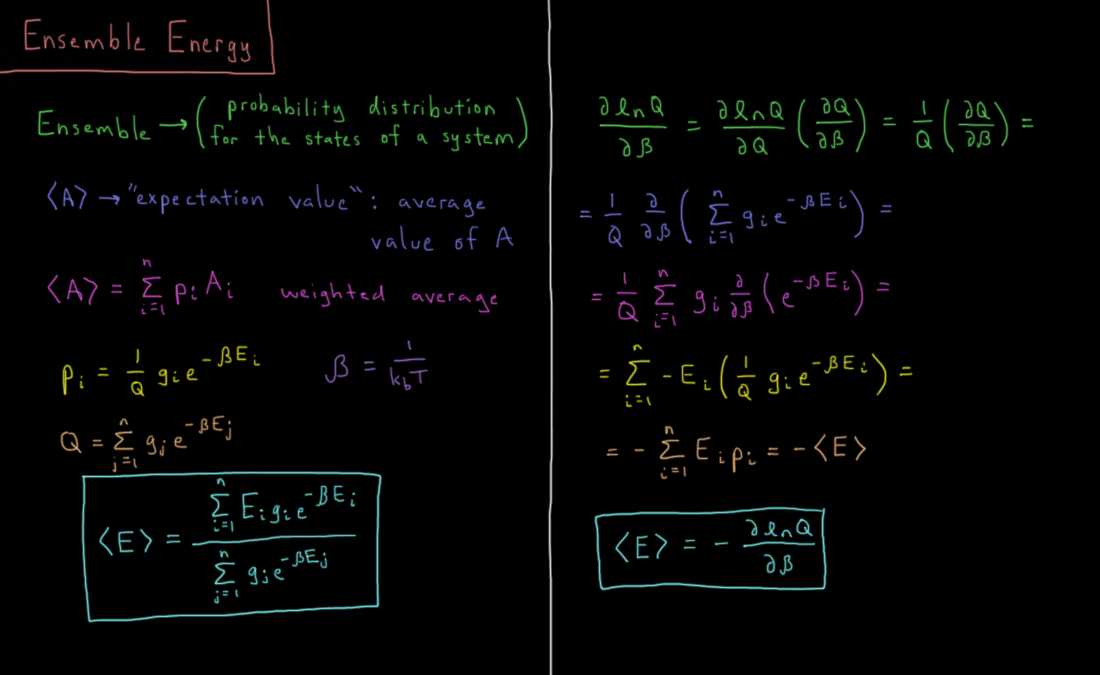 Ensemble Energy
Ensemble → (probability distribution
for the states of a system)
⟨A⟩ → "expectation value": average
value of A
⟨A⟩ = ∑_{i=1}^{n} p_i A_i weighted average
p_i = 1/Q g_i e^{-βE_i} β = 1/(k_b T)
Q = ∑_{j=1}^{n} g_j e^{-βE_j}
⟨E⟩ = (∑_{i=1}^{n} E_i g_i e^{-βE_i}) / (∑_{j=1}^{n} g_j e^{-βE_j})
∂lnQ/∂β = ∂lnQ/∂Q (∂Q/∂β) = 1/Q (∂Q/∂β) =
= 1/Q ∂/∂β (∑_{i=1}^{n} g_i e^{-βE_i}) =
= 1/Q ∑_{i=1}^{n} g_i ∂/∂β (e^{-βE_i}) =
= ∑_{i=1}^{n} -E_i (1/Q g_i e^{-βE_i}) =
= - ∑_{i=1}^{n} E_i p_i = -⟨E⟩
⟨E⟩ = - ∂lnQ/∂β